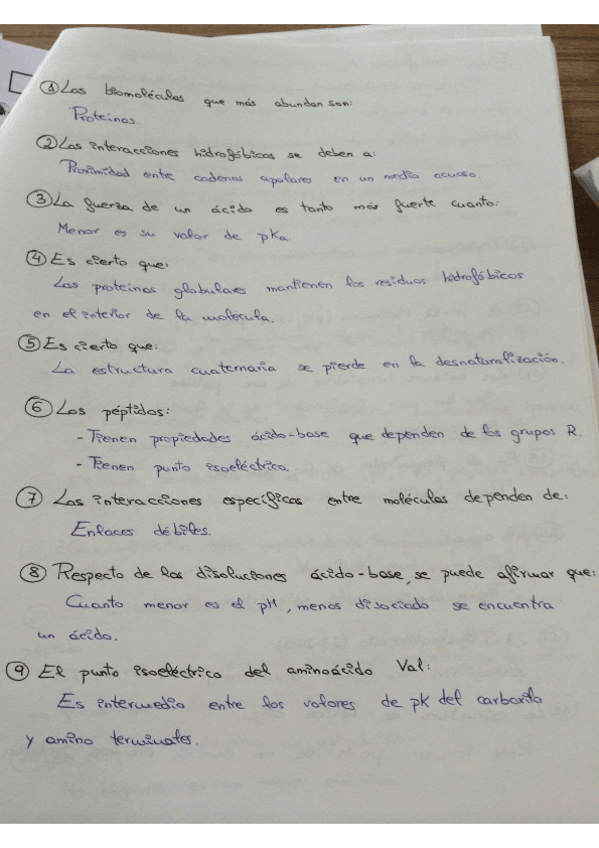 ① Las biomoléculas que más abundan son:
Proteínas.
② Las interacciones hidrofóbicas se deben a:
Proximidad entre cadenas apolares en un medio acuoso.
③ La fuerza de un ácido es tanto más fuerte cuanto:
Menor es su valor de pKa.
④ Es cierto que:
Las proteínas globulares mantienen los residuos hidrofóbicos
en el interior de la molécula.
⑤ Es cierto que:
La estructura cuaternaria se pierde en la desnaturalización.
⑥ Los péptidos:
- Tienen propiedades ácido-base que dependen de los grupos R.
- Tienen punto isoeléctrico.
⑦ Las interacciones específicas entre moléculas dependen de:
Enlaces débiles.
⑧ Respecto de las disoluciones ácido-base, se puede afirmar que:
Cuanto menor es el pH, menos disociado se encuentra
un ácido.
⑨ El punto isoeléctrico del aminoácido Val:
Es intermedio entre los valores de pk del carboxilo
y amino terminales.